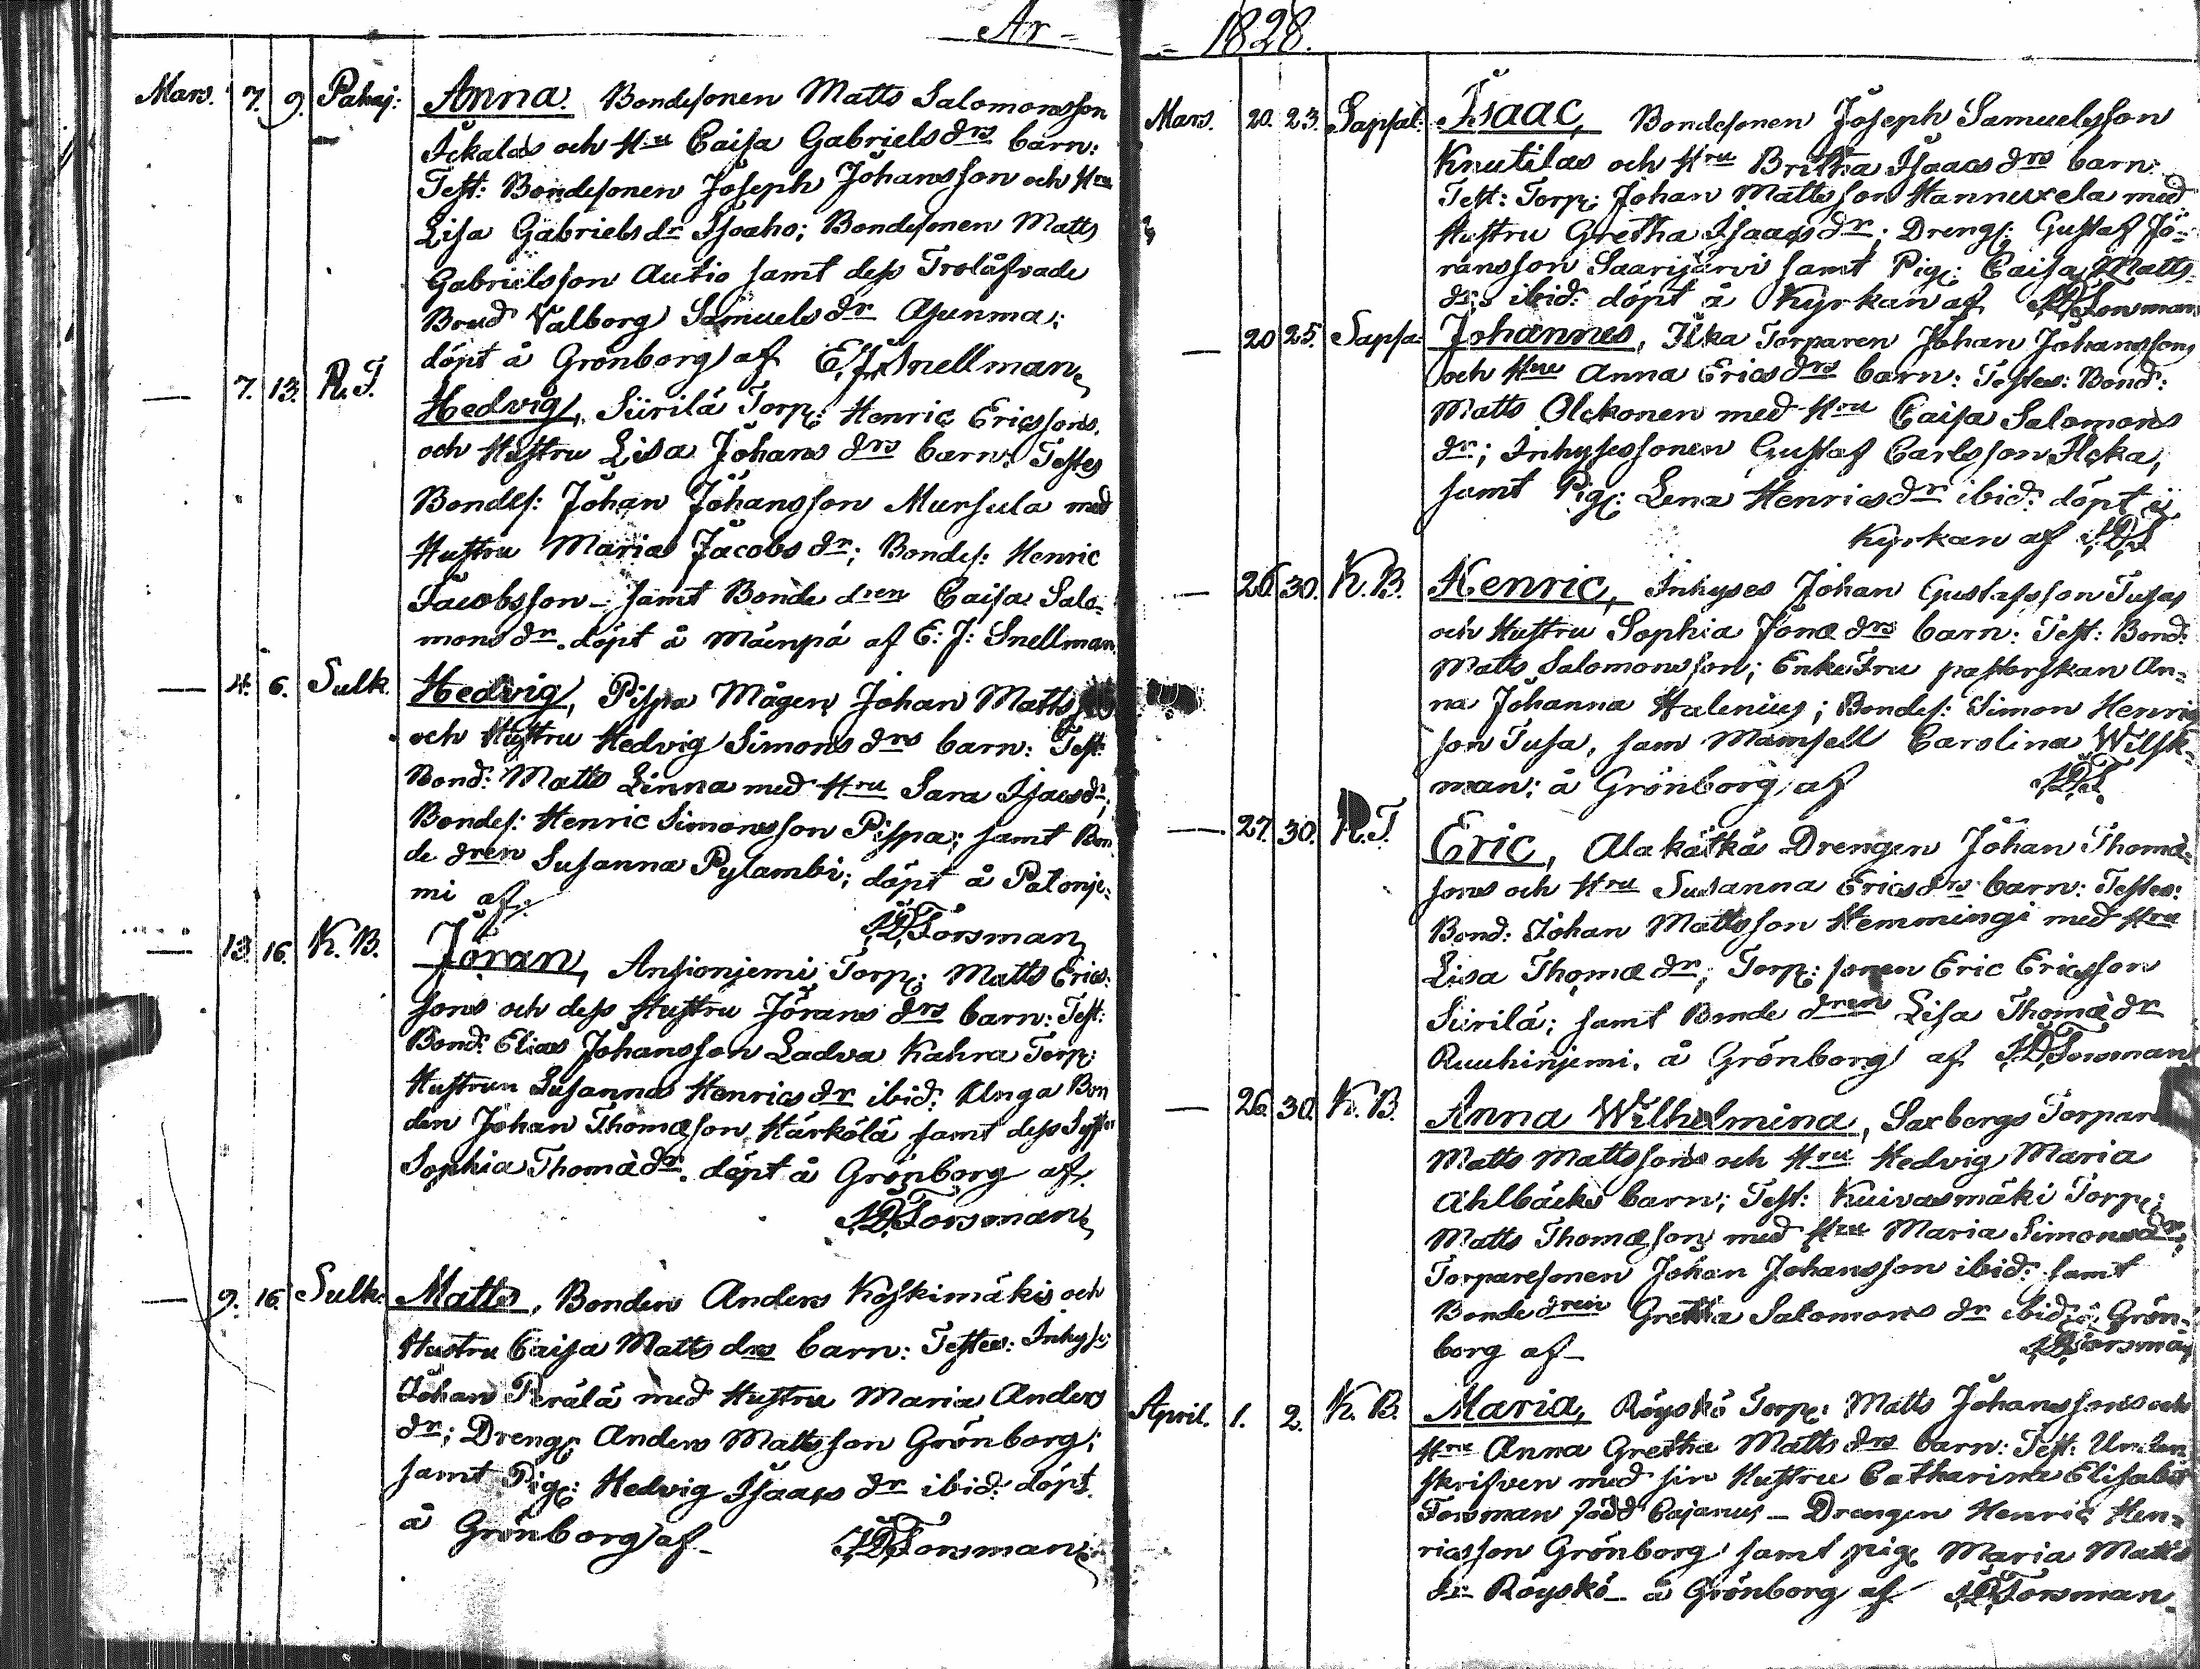 År = = 1828.
Mars. 7. 9. Pahaj: Anna. Bondesonen Matts Salomonsson
Ickalas och Hru Caisa Gabriels drs barn:
Test: Bondesonen Joseph Johansson och Hru
Lisa Gabriels dr Isoaho; Bondesonen Matts
Gabrielsson Autio samt dess Trolåfvade
Brud Valborg Samuels dr Asunma;
döpt å Grönborg af E. J. Snellman
— 7. 13. R. T. Hedvig, Siirilä Torp: Henric Ericssons
och Hustru Lisa Johans drs barn: Testes
Bondes: Johan Johansson Mursula med
Hustru Maria Jacobs dr; Bondes: Henric
Jacobsson – samt Bonde dren Caisa Salo-
mons dr. döpt å Mäenpä af E: J: Snellman.
— 4. 6. Sulk. Hedvig, Pispa Mågen Johan Matts
och Hustru Hedvig Simons drs barn: Test:
Bond: Matts Linna med Hru Sara Isacs dr;
Bondes: Henric Simonsson Pispa; samt Bon
de dren Susanna Pylambi; döpt å Patonje-
mi af. Forsman
— 13. 16. K. B. Jöran, Ansionjemi Torp: Matts Erics-
sons och dess Hustru Jörans drs barn: Test:
Bond: Elias Johansson Ladva Kahra Torp:
Hustrun Susanna Henrics dr ibid: Unga Bon
den Johan Thomæson Härkölä samt dess Syster
Sophia Thomæ dr. döpt å Grönborg af
Forsman
— 9. 16. Sulk: Matts, Bonden Anders Koskimäkis och
Hustru Caisa Matts drs barn: Testes: Inhys:
Johan Perälä med Hustru Maria Anders
dr; Dreng: Anders Mattsson Grönborg;
samt Pig: Hedvig Isaacs dr ibid: döpt
å Grönborg af – Forsman
Mars. 20. 23. Sapsal: Isaac, Bondesonen Joseph Samuelsson
Knutilas och Hru Britha Isaacs drs barn:
Test: Torp: Johan Mattsson Hannuxela med
Hustru Gretha Isaacs dr; Dreng: Gustaf Jö-
ransson Saarijärvi samt Pig: Caisa Matts
dr: ibid: döpt å Kyrkan af Forsman
— 20 25. Sapsa: Johannes, Ilka Torparen Johan Johanssons
och Hru Anna Erics drs barn: Testes: Bond:
Matts Olckonen med Hru Caisa Salomons
dr; Inhysessonen Gustaf Carlsson Ilcka,
samt Pig: Lena Henrics dr ibid: döpt i
Kyrkan af
— 26. 30. K. B. Henric, Inhyses Johan Gustafsson Tusas
och Hustru Sophia Jonæ drs barn: Test: Bond:
Matts Salomonsson; EnkeFru pastorskan An-
na Johanna Halenius; Bondes: Simon Henrics
son Tusa, sam Mamsell Carolina Wilsk-
man; å Grönborg af
— 27. 30. R. T. Eric, Alakätkä Drengen Johan Thomæ-
sons och Hru Susanna Erics drs barn: Testes:
Bond: Johan Mattsson Hemmingi med Hru
Lisa Thomæ dr; Torp: sonen Eric Ericsson
Siirilä; samt Bonde dren Lisa Thomæ dr
Ruuhinjemi. å Grönborg af Forsman
— 26. 30. K. B. Anna Wilhelmina, Saxbergs Torpare
Matts Mattssons och Hru Hedvig Maria
Ahlbäcks barn; Test: Kuivasmäki Torp:
Matts Thomæson med Hru Maria Simons dr;
Torparesonen Johan Johansson ibid: samt
Bonde dren Gretha Salomons dr ibid: å Grön-
borg af – Forsman
April. 1. 2. K. B. Maria, Röyskö Torp: Matts Johanssons och
Hru Anna Gretha Matts drs barn: Test:
skrifven med sin Hustru Catharina Elisabet
Forsman född Cajanus – Drengen Henric Hen-
ricsson Grönborg samt pig: Maria Matts
dr Röyskö – å Grönborg af Forsman.